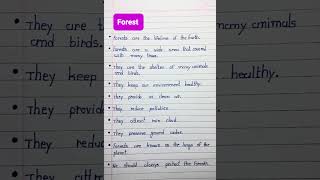 Forest
Forests are the lifeline of the Earth.
Forests are a wide area that covered
with many trees.
They are the shelter of many animals
and birds.
They keep our environment healthy.
They provide us clean air.
They reduce pollution.
They attract rain cloud.
They preserve ground water.
Forests are known as the lungs of the
planet.
We should always protect the forests.
They are t
and birds.
They keep
They provid
They reduc
They attra
many animals
healthy.